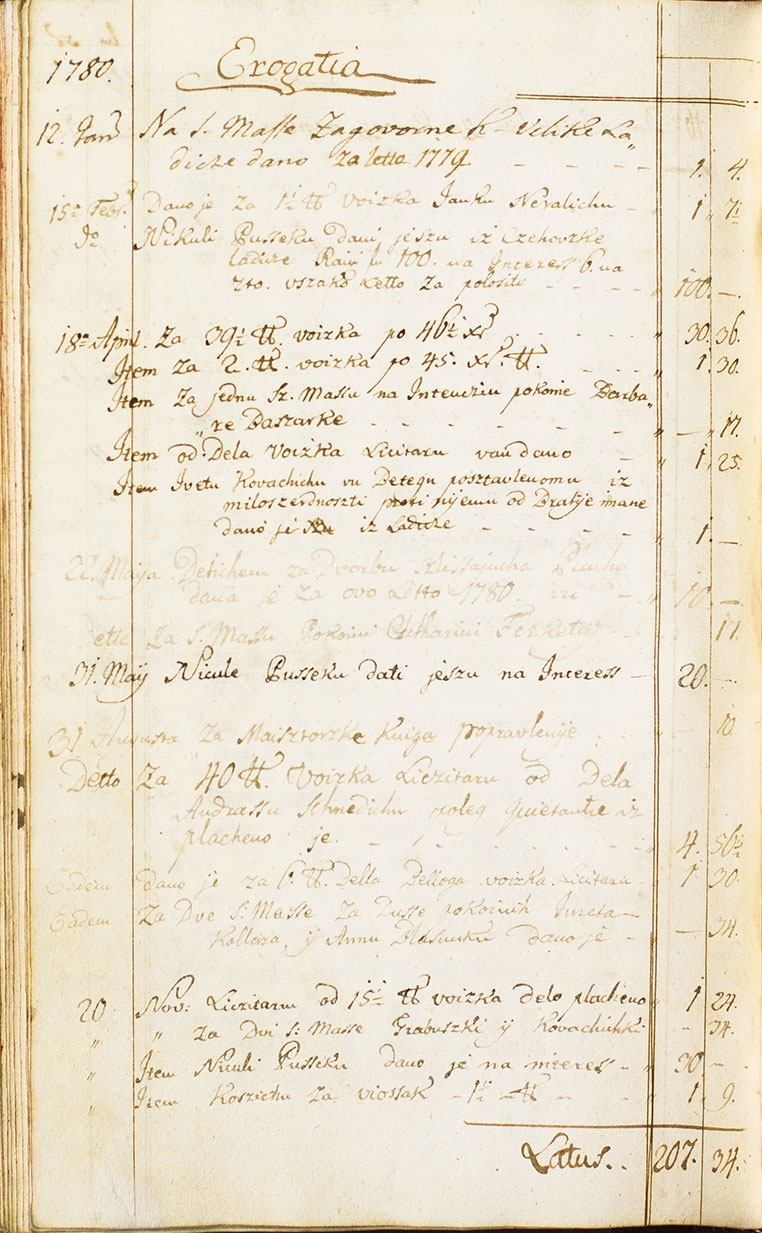 1780. Erogatia
12. Janr Na S. Masse Zagovorne k Velike La„
dicze dano za letto 1779 - - - - 1. 4.
15a Febr. Dano je za 1½ ℔ voizka Janku Nevalichu - 1 „ 7½
do Nikuli Pusseku dani jeszu iz Czehovzke
ladicze Rain fu 100. na Interess 6. na
zto. vszako Letto za polositi - - - „ 100. —.
18a April. Za 39½ ℔. voizka po 46½ xr - - - „ 30. 36.
Item za 2. ℔. voizka po 45. xr. ℔. - - - „ 1. 30.
Item Za jednu Sz. Massu na Intenziu pokonie Barba„
„re Daszarke - - - - - - „ — „ 17.
Item od Dela Voizka Liczitaru van dano - „ 1. 25.
Item Ivetu Kovachichu vu Betegu posztavlenomu iz
miloszerdnoszti proti nyemu od Bratje imane
dano je iz Ladicze - - - - - „ 1. —
22. Maya Detichem za Dvorbu
dana je Za ovo Letto 1780. - „ 10. —.
Detto Za S. Massu Pokoini Catharini - 17.
31. Maÿ Nicule Pusseku dati jeszu na Interess - 20. —.
31 Augusta Za Maisztorzke Kniga popravlenije - „ 10.
Detto Za 40 ℔. Voizka Liczitaru od Dela
Andrassu Schnedichu poleg quietantie iz
placheno je. - - - - „ 4. 56½
Eadem dano je za 6. ℔. Della Belloga voizka. Liczitaru - 1 30.
Eadem Za Dve S: Masse Za Dusse pokoinih
Kollara, ÿ Annu dano je - - — 34.
20 Nov: Liczitaru od 15½ ℔ voizka delo placheno „ 1 24.
„ „ Za Dvi S: Masse Grabuszki ÿ Kovachichki - 34.
„ Item Niculi Pusseku dano je na interess - „ 30 —
„ Item Koszichu Za viossak - 1½ ℔ - - 1 „ 9.
Latus.. 207. 34.